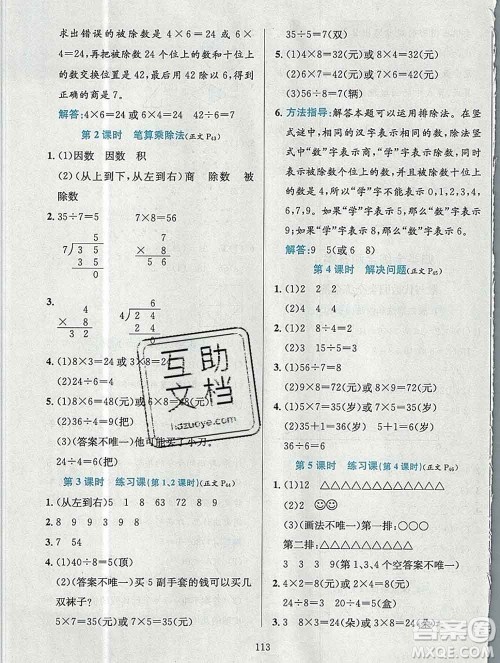 求出错误的被除数 4×6=24 或 6×
4=24,再把被除数 24 个位上的数和十位上
的数交换位置是 42,最后用 42 除以 6,得到
正确的商是 7。
解答:4×6=24 或 6×4=24 42÷6=7
第 2 课时 笔算乘除法(正文 P43)
1. (1)因数 因数 积
(2)(从上到下,从左到右) 商 除数 被
除数
2. 35÷7=5 7×8=56
5
7)35 7
35 ×8
0 56
3.
3 6
×8 4)24
24 24
0
4. (1)8×3=24 或 3×8=24
(2)36÷4=9
5. (1)6×8=48(元)或 8×6=48(元)
(2)36÷4=9(把)
(3)(答案不唯一)他可能买了小刀。
24÷4=6(把)
第 3 课时 练习课(第 1、2 课时)(正文 P44)
1. (从左到右) 5 1 8 63 72 9
2. 8 9 9 3 9
3. 7 7 54
4. (1)40÷8=5(顶)
(2)(答案不唯一)买 5 副手套的钱可以买几
双袜子?
5×7=35(元)或 7×5=35(元)
35÷5=7(双)
5. (1)4×8=32(元)或 8×4=32(元)
(2)3×8=24(元)或 8×3=24(元)
(3)56÷8=7(辆)
6. 方法指导:解答本题可以运用排除法。在竖
式谜中,相同的汉字表示相同的数,除法竖
式中“数”字表示商,“学”字表示除数,除数
要比余数大,余数是 4,那么除数“学”一定
是比 4 大的数,“学”不能表示 0,1,2,3,4,
5,9。如果“学”字表示 6,那么“数”字表示
8。如果“学”字表示 5,那么“数”字表示 9。
解答:9 5(或 6 8)
第 4 课时 解决问题(正文 P45)
1. (1)2 2 2
(2)3 15÷5=3
2. (1)5×6=30(元)或 6×5=30(元)
(2)32÷8=4(元)
3. 8×4=32(元)或 4×8=32(元)
4. 7×5=35(岁)或 5×7=35(岁)
30÷6=5(岁)
第 5 课时 练习课(第 4 课时)(正文 P46)
1. (1)2 △△△△△△△△△△△△
(2)3 (画法不唯一)第一排:○○○○
第二排:△△△△△△△△△△△△
24÷8=3 (第 1、3、4 个空答案不唯一)
2. 7×5=35(元)或 5×7=35(元)
3. 3 8 3×8=24(朵)或 8×3=24(朵)
113
互助
文档
huzuoye.com
作业帮
MXQE.COM